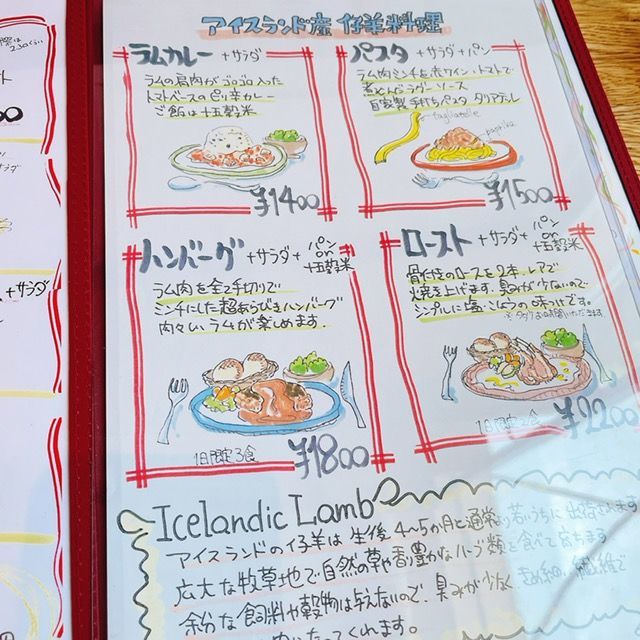 アイスランド産 仔羊料理
ラムカレー +サラダ
ラムの肩肉がゴロゴロ入った
トマトベースのピリ辛カレー
ご飯は十五穀米
¥1400
パスタ +サラダ+パン
ラム肉ミンチを赤ワイン・トマトで
煮込んだラグーソース
自家製 手打ちパスタ タリアテレ
tagliatelle
paprika
¥1500
ハンバーグ +サラダ+ パン or 十五穀米
ラム肉を全て手切りで
ミンチにした超あらびきハンバーグ
肉々しいラムが楽しめます.
1日限定3食
¥1800
ロースト +サラダ+ パン or 十五穀米
骨付きのロースを2本、レアで
焼き上げます.臭みが少ないので
シンプルに塩・こしょうの味つけです。
1日限定2食
¥2200
Icelandic Lamb
アイスランドの仔羊は 生後 4〜5か月と通常より若いうちに出荷
広大な牧草地で自然の草や香豊かなハーブ類を食べて育ちます
余分な飼料や穀物は与えないので、臭みが少なく きめ細かい繊維で
+サラダ